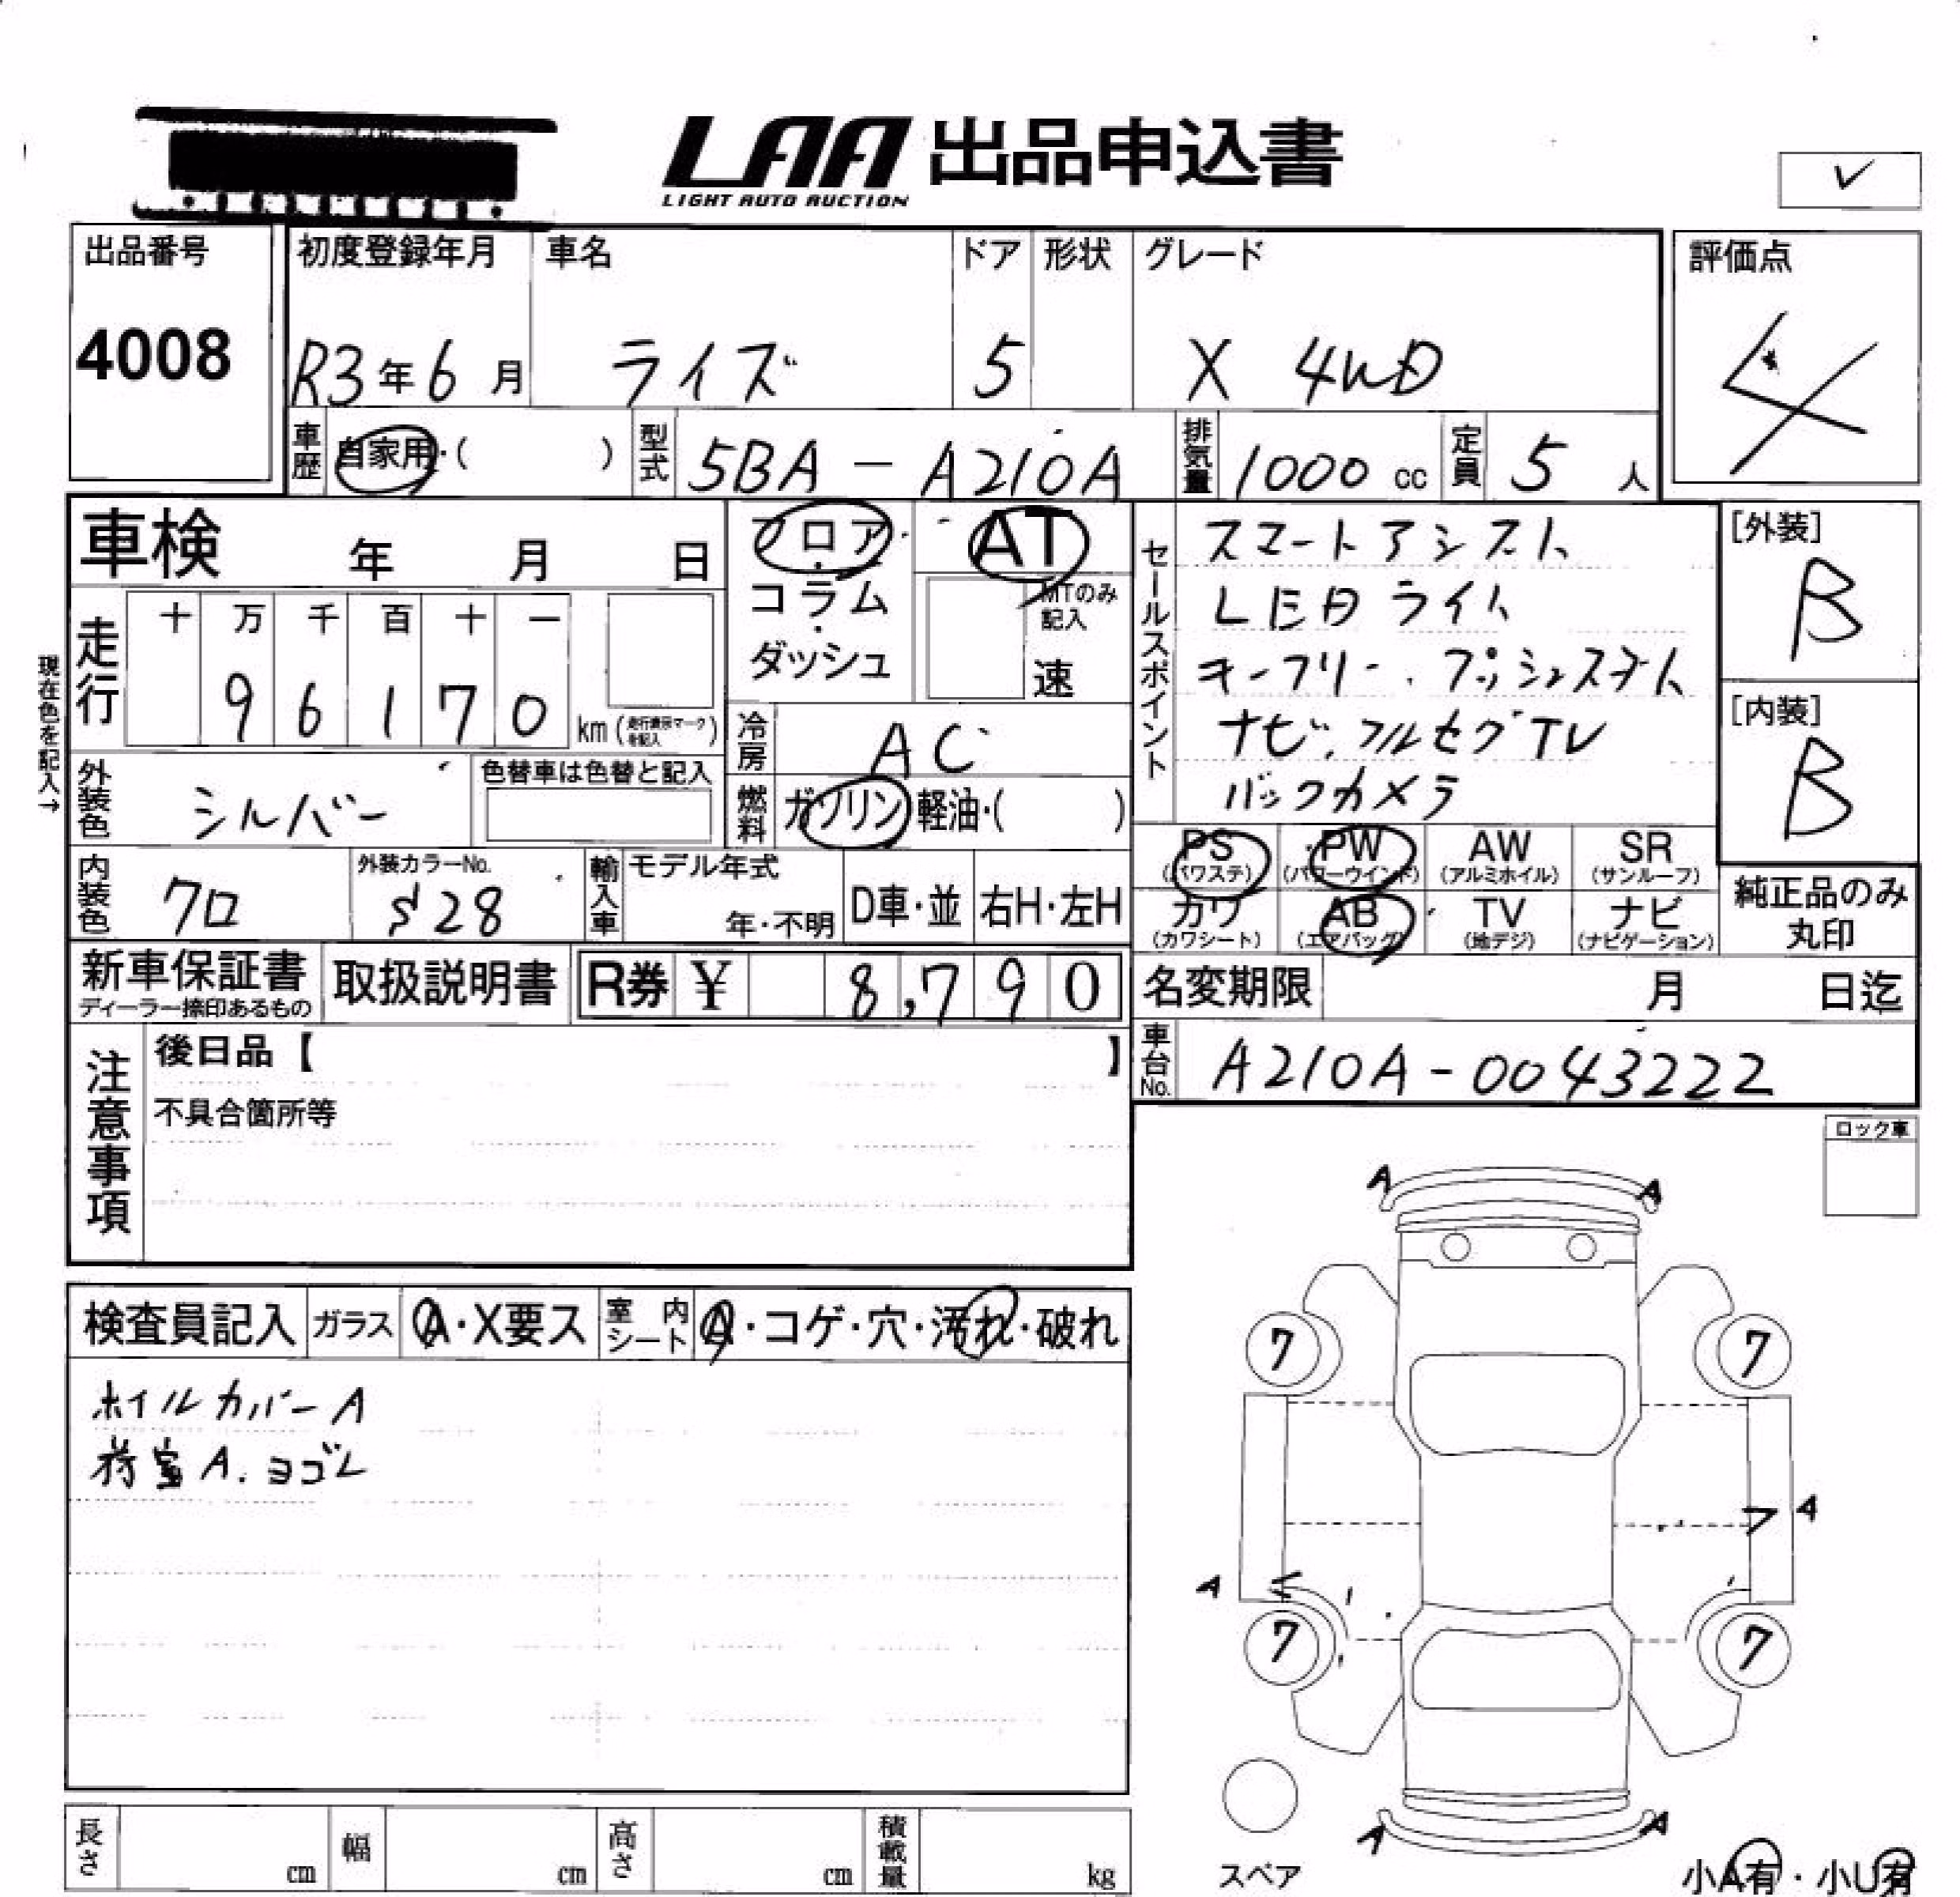 LAA 出品申込書
LIGHT AUTO AUCTION
出品番号
4008
初度登録年月 車名 ドア 形状 グレード
R3年6月 ライズ 5 X 4WD
評価点
4
車歴 自家用・( ) 型式 5BA-A210A 排気量 1000 cc 定員 5 人
車検 年 月 日
フロア・コラム・ダッシュ
AT
MTのみ記入
速
セールスポイント
スマートアシスト
LEDライト
キーフリー・プッシュスタート
ナビ、フルセグTV
バックカメラ
[外装]
B
[内装]
B
現在色を記入→
走行
十 万 千 百 十 一
9 6 1 7 0
km(走行表示マークを記入)
冷房 AC
外装色 シルバー
色替車は色替と記入
燃料 ガソリン・軽油・( )
PS (パワステ) PW (パワーウインド) AW (アルミホイル) SR (サンルーフ)
カワ (カワシート) AB (エアバッグ) TV (地デジ) ナビ (ナビゲーション)
純正品のみ
丸印
内装色 クロ
外装カラーNo.
S28
輸入車 モデル年式
年・不明
D車・並 右H・左H
新車保証書
ディーラー捺印あるもの
取扱説明書
R券 ¥ 8,790
名変期限 月 日迄
車台No. A210A-0043222
注意事項
後日品【 】
不具合箇所等
ロック車
検査員記入 ガラス A・X要ス 室内シート A・コゲ・穴・汚れ・破れ
ホイルカバーA
荷室A.ヨゴレ
A A
7 7
A
A
7 7
A A
スペア
小A有・小U有
長さ cm 幅 cm 高さ cm 積載量 kg